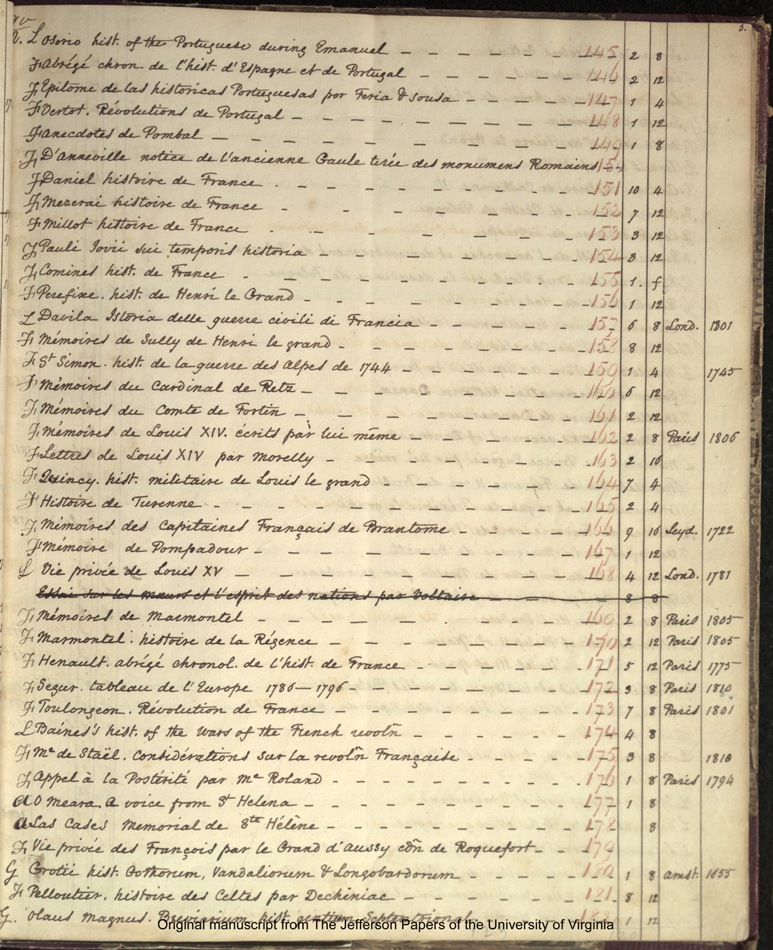 3.
L Osorio hist. of the Portuguese during Emanuel 145 2 8
J, Abrégé chron. de l'hist. d'Espagne et de Portugal 146 2 12
J, Epitome de las historicas Portuguesas por Feria & Sousa 147 1 4
J, Vertot. Révolutions de Portugal 148 1 12
J, anecdotes de Pombal 149 1 8
J, D'anneville notice de l'ancienne Gaule tirée des monumens Romains
J, Daniel histoire de France 151 10 4
J, Mezerai histoire de France 152 7 12
J, Millot histoire de France 153 3 12
J, Pauli Jovii sui temporis historia 154 3 12
J, Comines hist. de France 155 1. f.
J, Perefixe. hist. de Henri le Grand 156 1 12
L Davila Istoria delle guerre civili di Francia 157 6 8 Lond. 1801
J, Mémoires de Sully de Henri le grand 158 8 12
J, St Simon. hist. de la guerre des Alpes de 1744 159 1 4 1745
J, Mémoires du Cardinal de Retz 160 6 12
J, Mémoires du Comte de Fortin 161 2 12
J, Mémoires de Louis XIV. écrits par lui même 162 2 8 Paris 1806
J, Lettres de Louis XIV par Morelly 163 2 16
J, Quincy. hist. militaire de Louis le grand 164 7 4
J, Histoire de Turenne 165 2 4
J, Mémoires des Capitaines Français de Brantome 166 9 16 Leyd. 1722
J, Mémoire de Pompadour 167 1 12
L Vie privée de Louis XV 168 4 12 Lond. 1781
Essai sur les mœurs et l'esprit des nations par Voltaire 8 8
J, Mémoires de Marmontel 169 2 8 Paris 1805
J, Marmontel. histoire de la Régence 170 2 12 Paris 1805
J, Henault. abrégé chronol. de l'hist. de France 171 5 12 Paris 1775
J, Segur. tableau de l'Europe 1786–1796 172 3 8 Paris 1810
J, Toulongeon. Révolution de France 173 7 8 Paris 1801
L Baines's hist. of the wars of the French revoln 174 4 8
J, Me de Staël. Considérations sur la revoln Française 175 3 8 1818
J, Appel à la Postérité par Me Roland 176 1 8 Paris 1794
a O Meara. a voice from St Helena 177 1 8
a Las Cases Memorial de Ste Hélène 178 8
J, Vie privée des François par le Grand d'aussy edn de Roquefort 179
G Grotii hist. Gothorum, Vandaliorum & Longobardorum 180 1 8 amst. 1655
J, Pelloutier. histoire des Celtes par Dechiniac 181 8 12
G. Olaus magnus. hist. gentium Septentrional. 1 12
Original manuscript from The Jefferson Papers of the University of Virginia